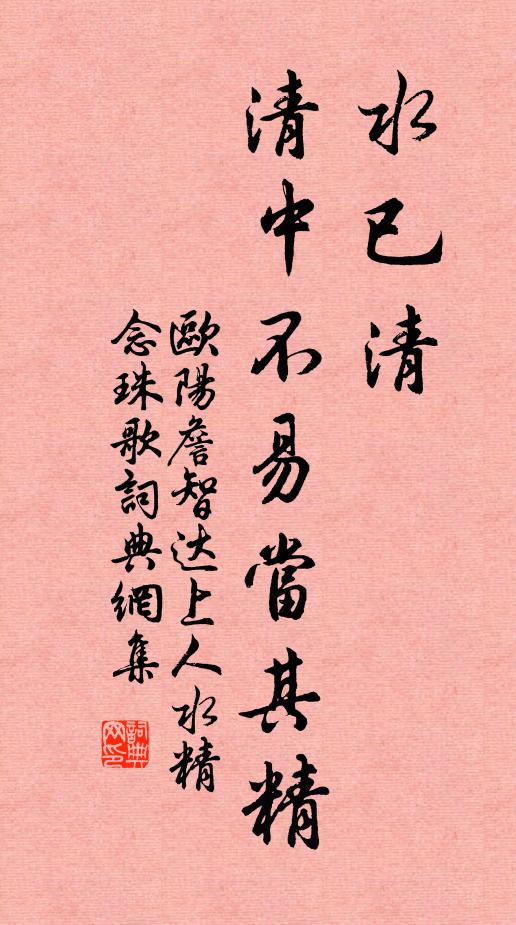 水已清
清中不易當其精
歐陽詹智达上人水精
念珠歌詞典網集
詞典
网印